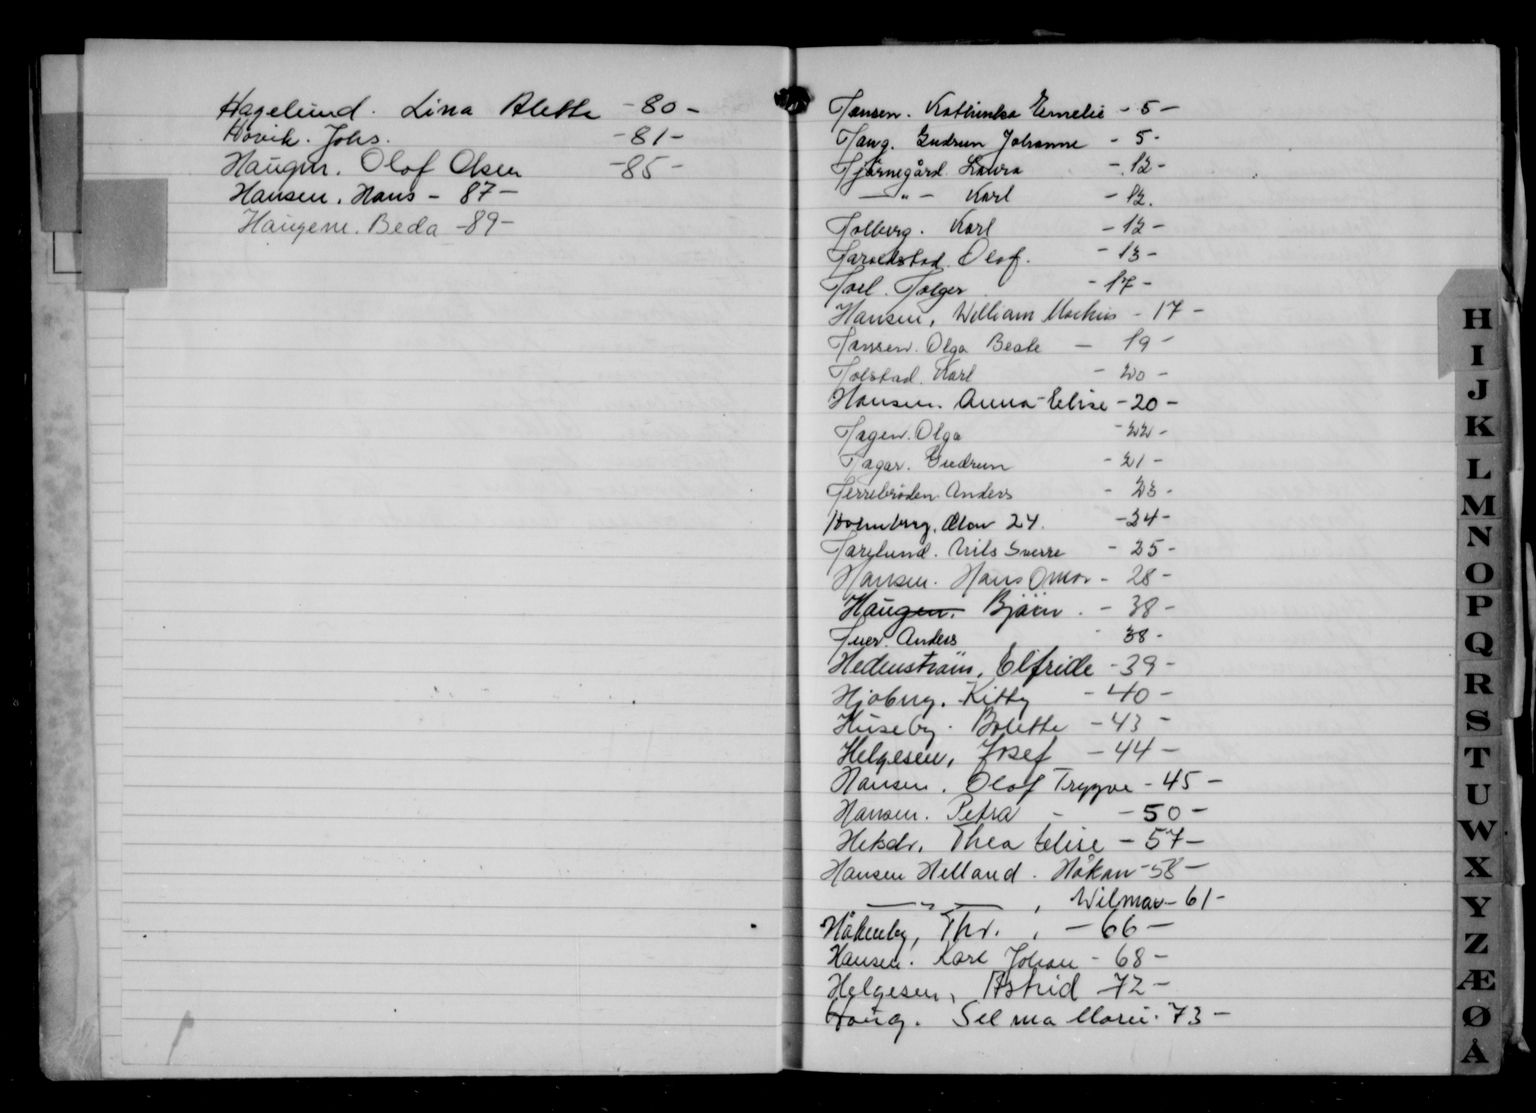 Hagelund. Lina Alette - 80 -
Hovik. Johs. - 81 -
Haugen. Olof Olsen - 85 -
Hansen, Hans - 87 -
Haugene. Beda - 89 -
Hansen. Kathinka Emelie - 5 -
Haug. Gudrun Johanne - 5 -
Hjørnegård. Laura - 12 -
— " — Karl - 12.
Holberg. Karl - 12 -
Haraldstad. Olof. - 13 -
Hoel. Holger. - 17 -
Hansen, William Markus - 17 -
Hansen. Olga Beate - 19 -
Holstad. Karl - 20 -
Hansen. Anna Elise - 20 -
Hagen. Olga - 22 -
Hagar. Gudrun - 21 -
Herrebrøden. Anders - 23 -
Holmberg. 24. - 24 -
Haglund. Nils Sverre - 25 -
Hansen. Hans Omar - 28 -
Haugen. Bjørn. - 38 -
Huer. Anders 38 -
Hedenstrøm, Elfride - 39 -
Hjoberg. Kitty - 40 -
Huseby. Bolette - 43 -
Helgesen, Josef - 44 -
Hansen, Olof Trygve - 45 -
Hansen. Petra - - 50 -
Thea Elise - 57 -
Hansen Helland. Håkon - 58 -
— " — , Wilmar - 61 -
Håkenby, Thv. , - 66 -
Hansen. Karl Johan - 68 -
Helgesen, Astrid - 72 -
Houg. Selma Marie. 73 -
H
I
J
K
L
M
N
O
P
Q
R
S
T
U
W
X
Y
Z
Æ
Ø
Å